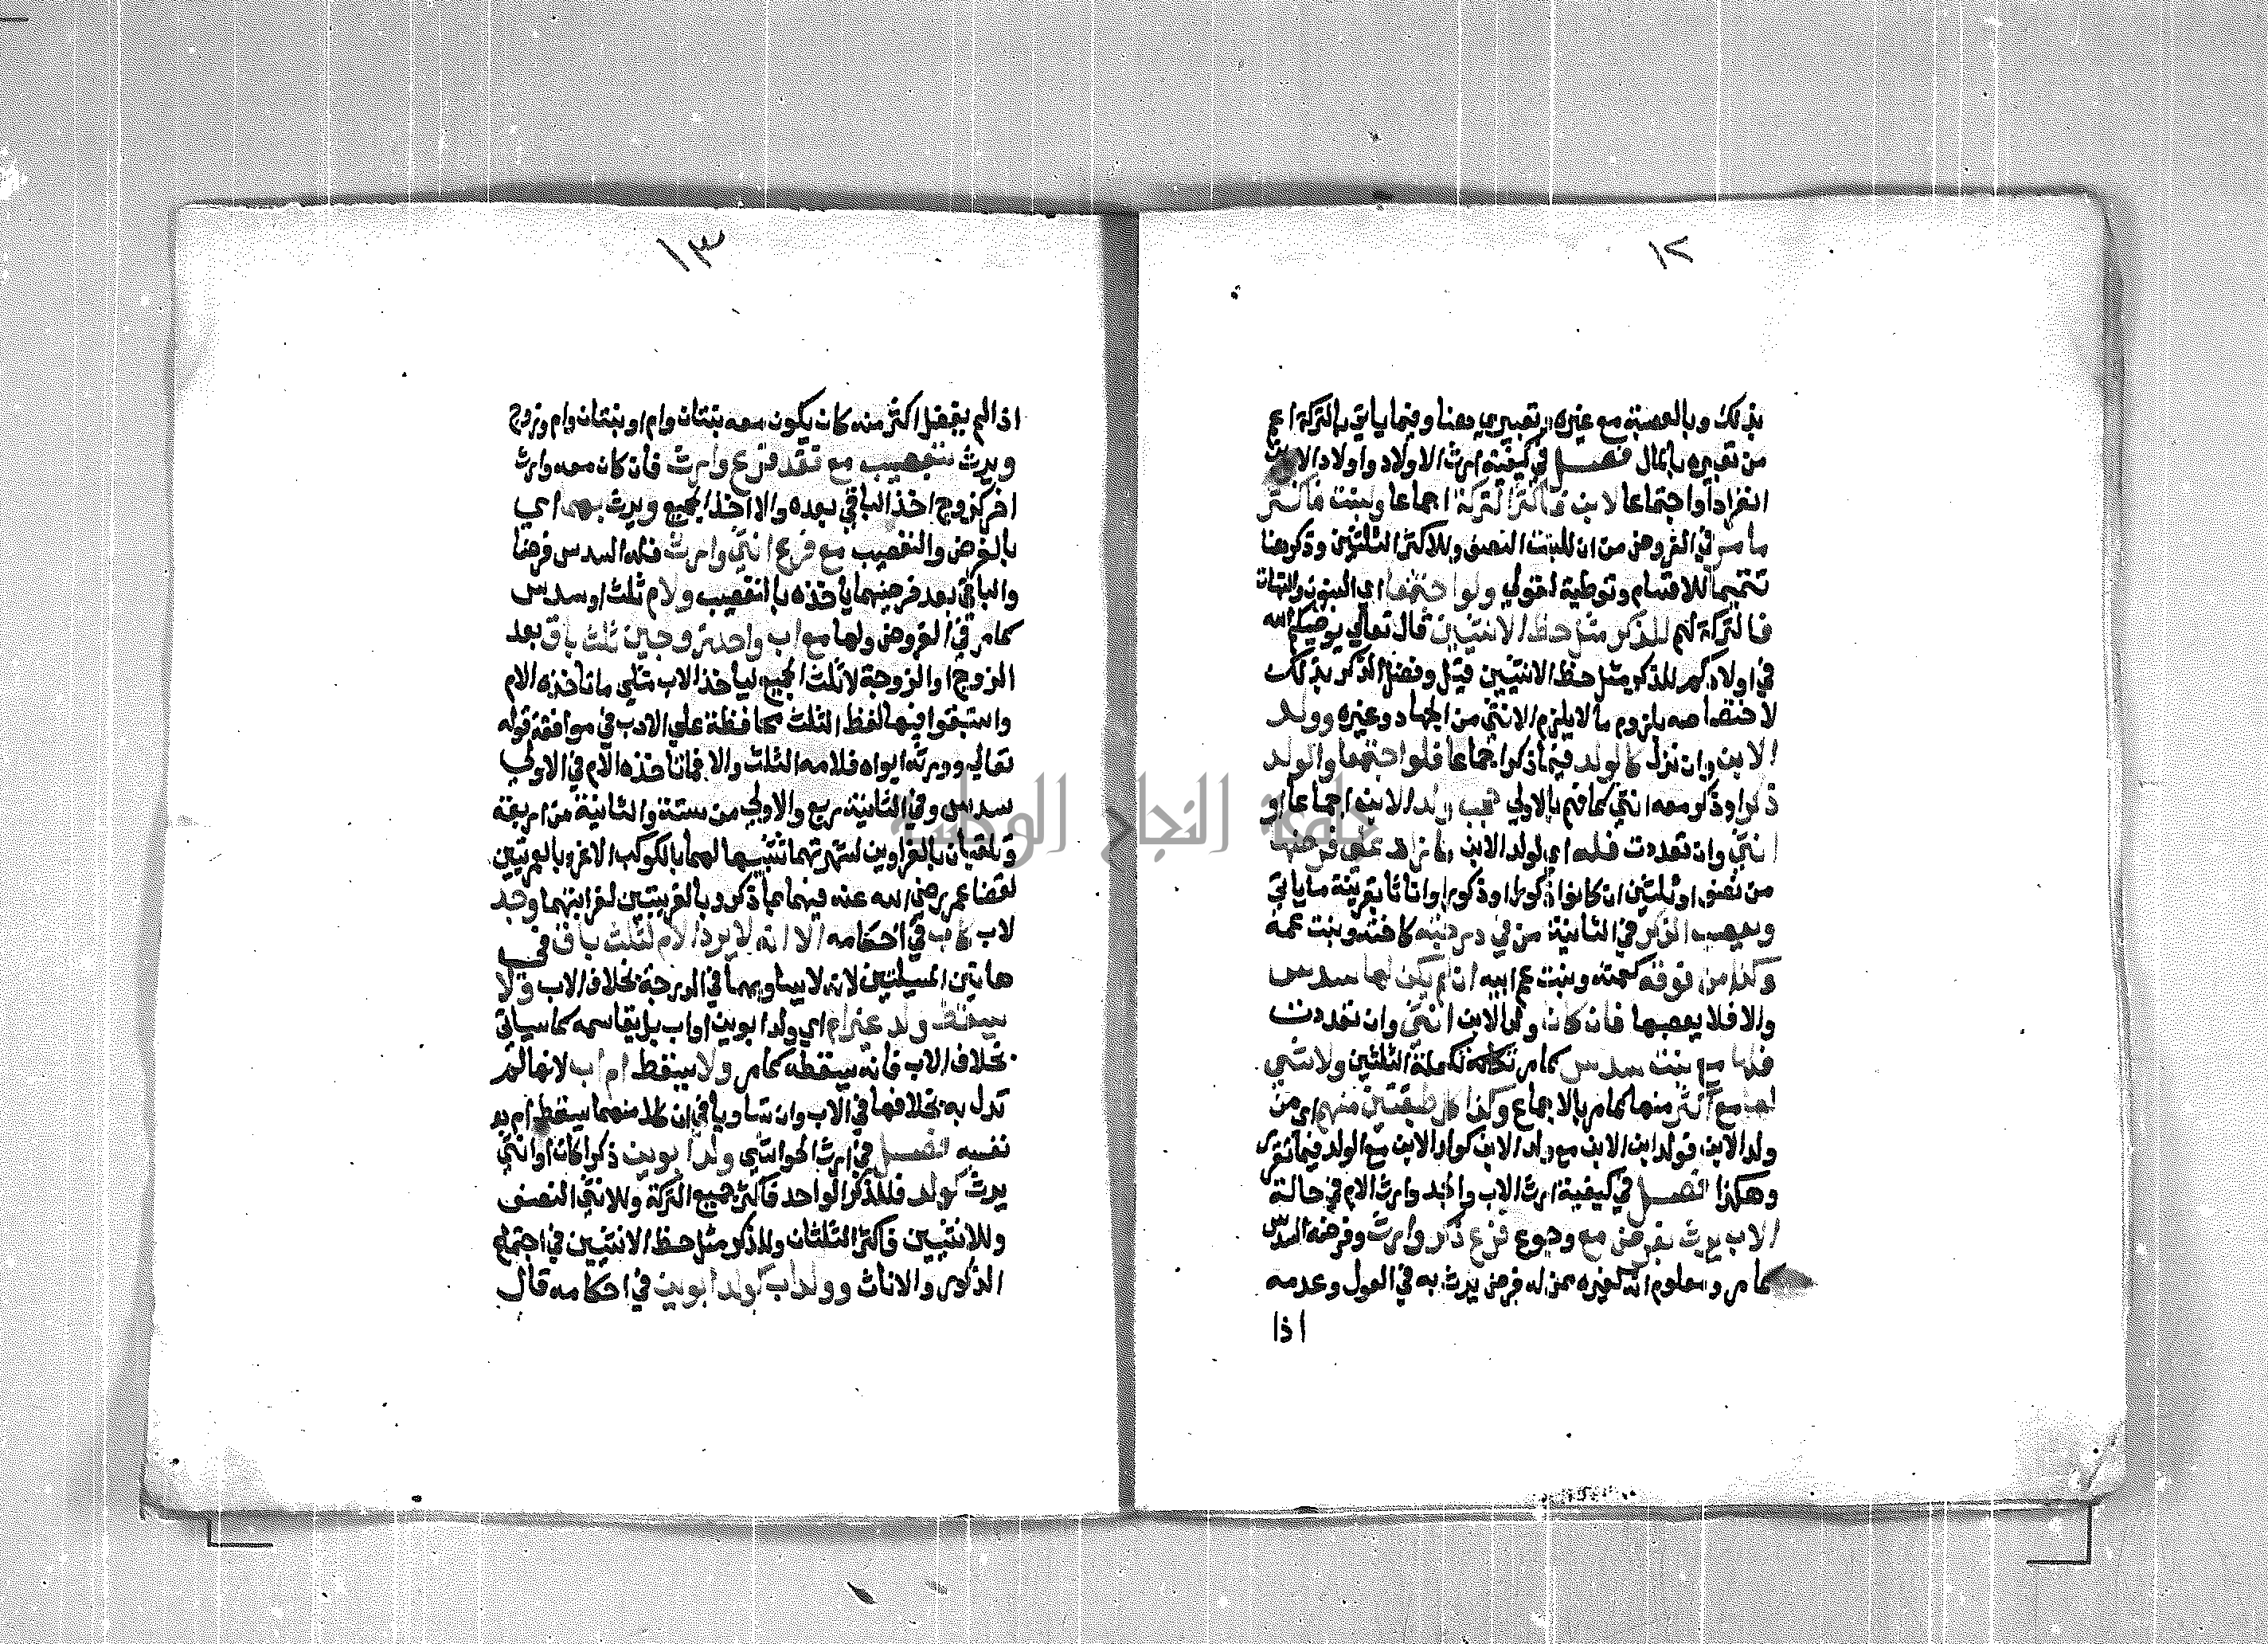 ١٢
بذلك وبالعصبة مع غيره وتعبيري هنا وفيما ياتي بالتركة اعم
من تعبيره بالمال فصل في كيفية ارث الاولاد واولاد الابن
انفرادا واجتماعا لابن فاكثر التركة اجماعا ولبنت فاكثر
ما مر في الفروض من ان للبنت النصف وللاكثر الثلثين وذكر هنا
تتميما للاقسام وتوطية لقولي ولو اجتمعا اي البنون والبنات
فالتركة لهم للذكر مثل حظ الانثيين قال تعالي يوصيكم الله
في اولادكم للذكر مثل حظ الانثيين قيل وفضل الذكر بذلك
لاختصاصه بلزوم ما لا يلزم الانثي من الجهاد وغيره وولد
الابن وان نزل كالولد فيما ذكر اجماعا فلو اجتمعا والولد
ذكر او ذكر معه انثي كما فهم بالاولي حجب ولد الابن اجماعا او
انثي وان تعددت فله اي لولد الابن ما زاد علي فرضها
من نصف او ثلثين ان كانوا ذكورا او ذكورا واناثا بقرينة ما ياتي
ويعصب الذكر في الثانية من في درجته كاخته وبنت عمه
وكذا من فوقه كعمته وبنت عم ابيه ان لم يكن لها سدس
والا فلا يعصبها فان كان ولد الابن انثي وان تعددت
فلها مع بنت سدس كما مر تكملة الثلثين ولا شي
لها مع اكثر منها كما مر بالاجماع وكذا كل طبقتين منهم اي من
ولد الابن فولد ابن الابن مع ولد الابن كولد الابن مع الولد فيما تقرر
وهكذا فصل في كيفية ارث الاب والجد وارث الام في حالة
الاب يرث بفرض مع وجود فرع ذكر وارث وفرضه السدس
كما مر ومعلوم انه لغيره ممن له فرض يرث به في العول وعدمه
اذا
١٣
اذا لم يفضل اكثر منه كان يكون معه بنتان وام او بنتان وام وزوج
ويرث بتعصيب مع فقد فرع وارث فان كان معه وارث
اخر كزوج اخذ الباقي بعده والا اخذ الجميع ويرث بهما اي
بالفرض والتعصيب مع فرع انثي وارث فله السدس فرضا
والباقي بعد فرضيهما ياخذه بالتعصيب ولام ثلث او سدس
كما مر في الفروض ولها مع اب واحد زوجين ثلث باق بعد
الزوج او الزوجة لا ثلث الجميع لياخذ الاب مثلي ما تاخذه الام
واستبقوا فيها لفظ الثلث محافظة علي الادب في موافقة قوله
تعالي وورثه ابواه فلامه الثلث والا فما تاخذه الام في الاولي
سدس وفي الثانية ربع والاولي من ستة والثانية من اربعة
وتلقبان بالغراوين لشهرتهما تشبيها لهما بالكوكب الاغر وبالعمريتين
لقضا عمر رضي الله عنه فيهما بما ذكر وبالغريبتين لغرابتهما وجد
لاب كاب في احكامه الا انه لا يرد الام لثلث باق في
هاتين المسيلتين لانه لا يساويهما في الدرجة بخلاف الاب ولا
يسقط ولد غير ام اي ولد ابوين او اب بل يقاسمه كما سياتي
بخلاف الاب فانه يسقطه كما مر ولا يسقط ام اب لانها لم
تدل به بخلافها في الاب وان تساويا في ان كلا منهما يسقط ام
نفسه فصل في ارث الحواشي ولد ابوين ذكرا كان او انثي
يرث كولد فللذكر الواحد فاكثر جميع التركة وللانثي النصف
وللانثيين فاكثر الثلثان وللذكر مثل حظ الانثيين في اجتماع
الذكور والاناث وولد اب كولد ابوين في احكامه قال
جامعة النجاح الوطنية